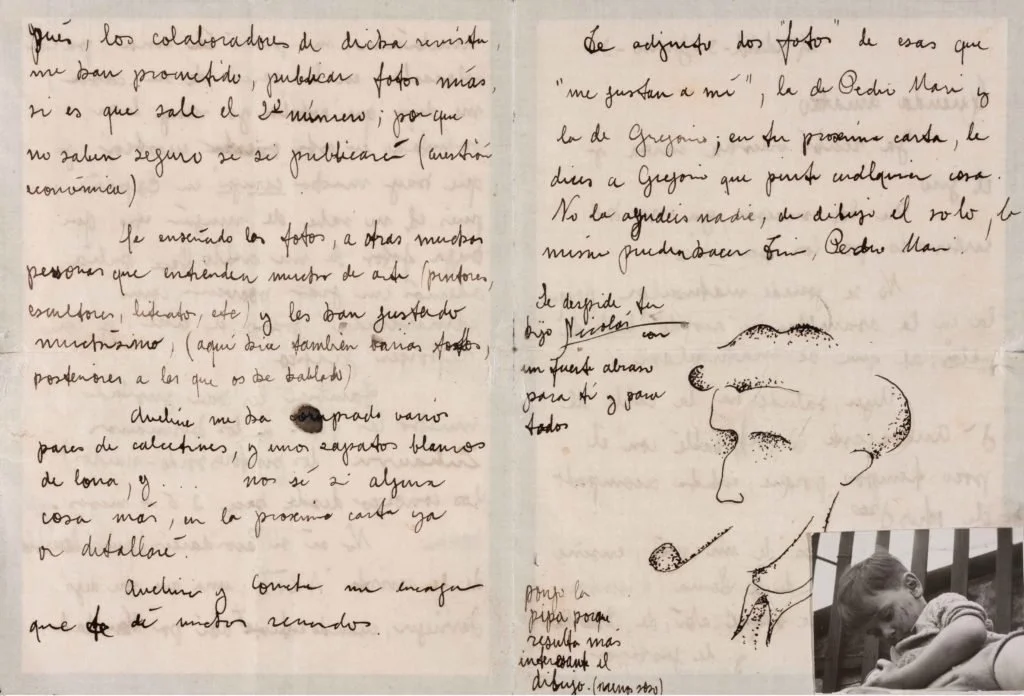 pués, los colaboradores de dicha revista,
me han prometido, publicar fotos mías,
si es que sale el 2º número; porque
no saben seguro si se publicará (cuestión
económica)
He enseñado las fotos, a otras muchas
personas que entienden mucho de arte (pintores,
escultores, literato, etc) y les han gustado
muchísimo, (aquí hice también varias fotos,
posteriores a las que os he hablado)
Aveline me ha comprado varios
pares de calcetines, y unos zapatos blancos
de lona, y .... no sé si alguna
cosa más, en la proxima carta ya
os detallaré
Aveline y me encargan
que te dé muchos recuerdos.
Te adjunto dos "fotos" de esas que
"me gustan a mí", la de Pedro Mari y
la de Gregorio; en tu proxima carta, le
dices a Gregorio que pinte cualquier cosa.
No la ayudeis nadie, de dibujo él solo, lo
mismo pueden hacer Trini, Pedro Mari.
Se despide tu
hijo Nicolás con
un fuerte abrazo
para tí y para
todos
pongo la
pipa porque
resulta mas
interesante el
dibujo. (menos soso)